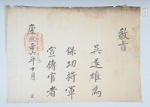 敎旨
吳達雄爲
保功將軍
宣傳官者
康熙 年十月 日